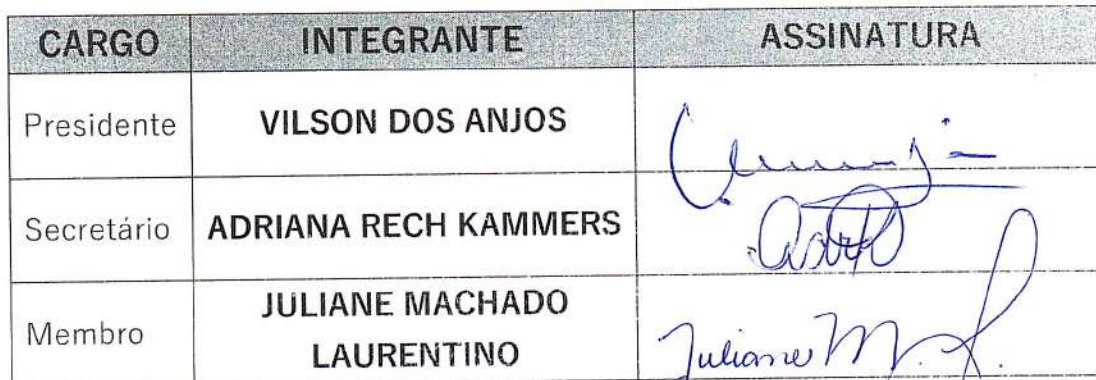 CARGO INTEGRANTE ASSINATURA
Presidente VILSON DOS ANJOS
Secretário ADRIANA RECH KAMMERS
JULIANE MACHADO
Membro
LAURENTINO
Juliane M. L.